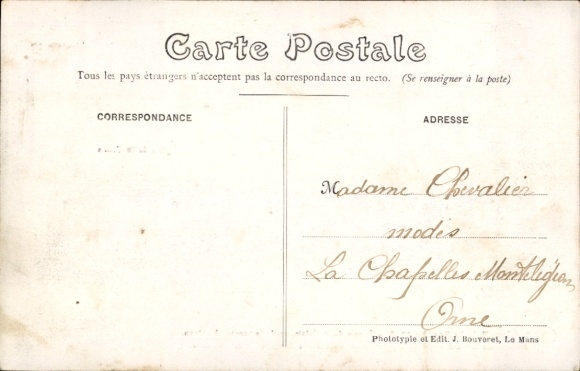 Carte Postale
Tous les pays étrangers n'acceptent pas la correspondance au recto. (Se renseigner à la poste)
CORRESPONDANCE
ADRESSE
Madame Chevalier
modes
La Chapelles Montligeon
Orne
Phototypie et Edit. J. Bouveret, Le Mans